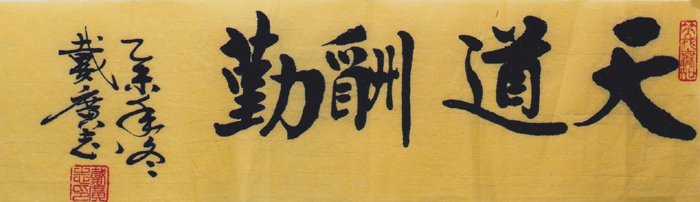 天道酬勤
乙未年冬
戴廣志